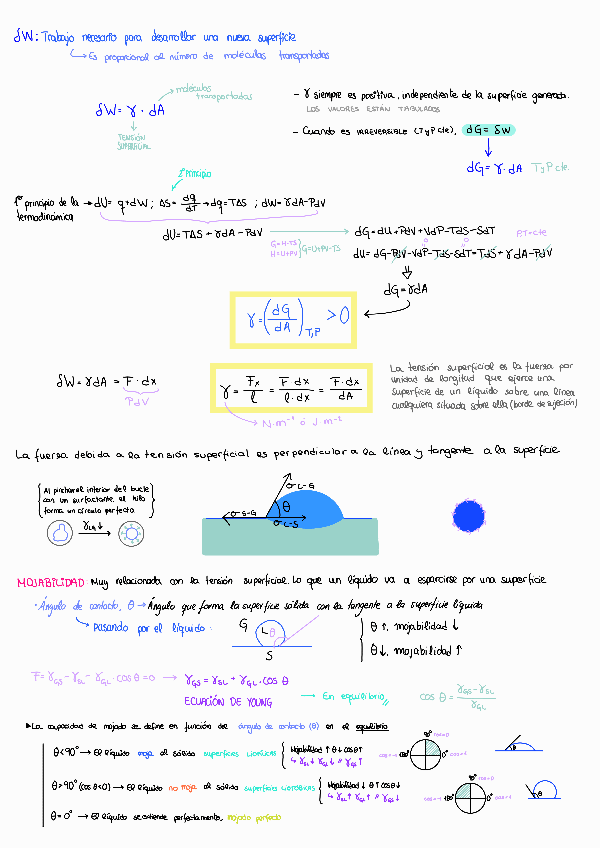 δW: Trabajo necesario para desarrollar una nueva superficie
↳ Es proporcional al número de moléculas transportadas
moléculas transportadas
δW = γ · dA
TENSIÓN SUPERFICIAL
- γ siempre es positiva, independiente de la superficie generada.
LOS VALORES ESTÁN TABULADOS
- Cuando es IRREVERSIBLE (T y P cte), dG = δW
dG = γ · dA T y P cte.
2º Principio
1er principio de la termodinámica → dU = q + dW ; ΔS = dq/dT → dq = TΔS ; dW = γdA - PdV
dU = TΔS + γdA - PdV → dG = dU + PdV + VdP - TdS - SdT P,T = cte
G = H - TS
H = U + PV
G = U + PV - TS
dU = dG - PdV - VdP - TdS - SdT = TdS + γdA - PdV
dG = γdA
γ = (dG/dA)T,P > 0
δW = γdA = F · dx
PdV
γ = Fx/l = F·dx/l·dx = F·dx/dA
→ N·m⁻¹ ó J m⁻²
La tensión superficial es la fuerza por
unidad de longitud que ejerce una
superficie de un líquido sobre una línea
cualquiera situada sobre ella (borde de sujeción)
La fuerza debida a la tensión superficial es perpendicular a la línea y tangente a la superficie
Al pinchar el interior del bucle
con un surfactante, el hilo
forma un círculo perfecto.
γLG ↓
σL-G
θ
σS-G
σL-S
MOJABILIDAD: Muy relacionada con la tensión superficial. Lo que un líquido va a esparcirse por una superficie
· Ángulo de contacto, θ → Ángulo que forma la superficie sólida con la tangente a la superficie líquida
↳ Pasando por el líquido:
G
L θ
S
θ ↑, mojabilidad ↓
θ ↓, mojabilidad ↑
F = γGS - γSL - γGL · cos θ = 0 → γGS = γSL + γGL · cos θ
ECUACIÓN DE YOUNG
→ En equilibrio,
cos θ = γGS - γSL / γGL
▶ La capacidad de mojado se define en función del ángulo de contacto (θ) en el equilibrio
θ < 90° → El líquido moja al sólido superficies liofílicas
Mojabilidad ↑ θ ↓ cos θ ↑
↳ γSL ↓ γGL ↓ // γGS ↑
90° cos = 0
cos = -1 180° 0° cos = 1
θ
θ > 90° (cos θ < 0) → El líquido no moja al sólido superficies liofóbicas
Mojabilidad ↓ θ ↑ cos θ ↓
↳ γSL ↑ γGL ↑ // γGS ↓
90° cos = 0
cos = -1 180° 0° cos = 1
θ
θ = 0° → El líquido se extiende perfectamente, mojado perfecto